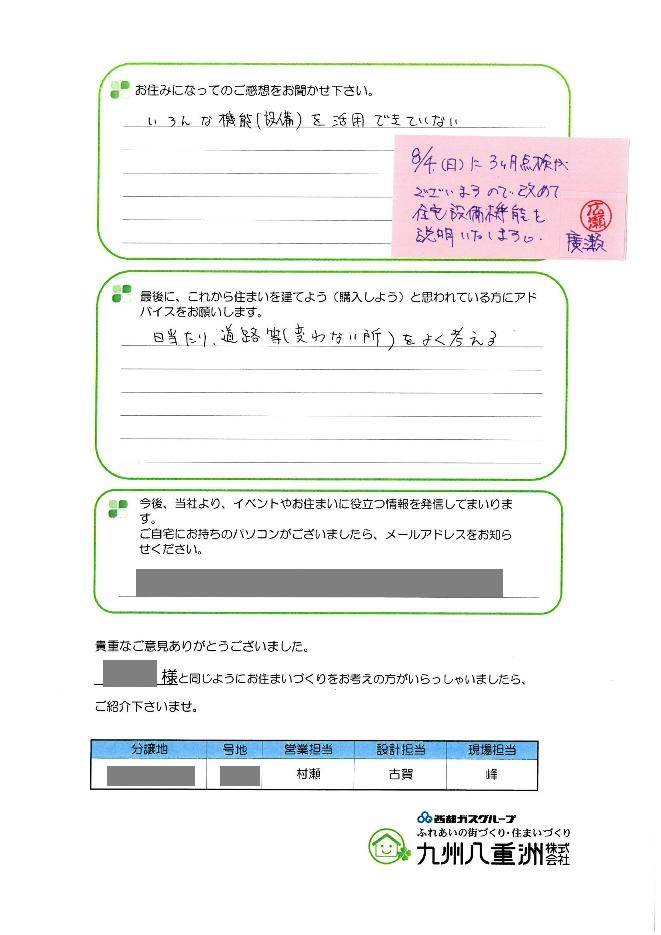 お住みになってのご感想をお聞かせ下さい。
いろんな機能(設備)を活用できていない
8/4(日)に3ヶ月点検が
ございますので、改めて
住宅設備機能を
説明いたします。
広瀬
廣瀬
最後に、これから住まいを建てよう（購入しよう）と思われている方にアド
バイスをお願いします。
日当たり、道路等(変わない所)をよく考える
今後、当社より、イベントやお住まいに役立つ情報を発信してまいりま
す。
ご自宅にお持ちのパソコンがございましたら、メールアドレスをお知ら
せください。
貴重なご意見ありがとうございました。
様と同じようにお住まいづくりをお考えの方がいらっしゃいましたら、
ご紹介下さいませ。
分譲地 号地 営業担当 設計担当 現場担当
村瀬 古賀 峰
西部ガスグループ
ふれあいの街づくり・住まいづくり
九州八重洲株式会社